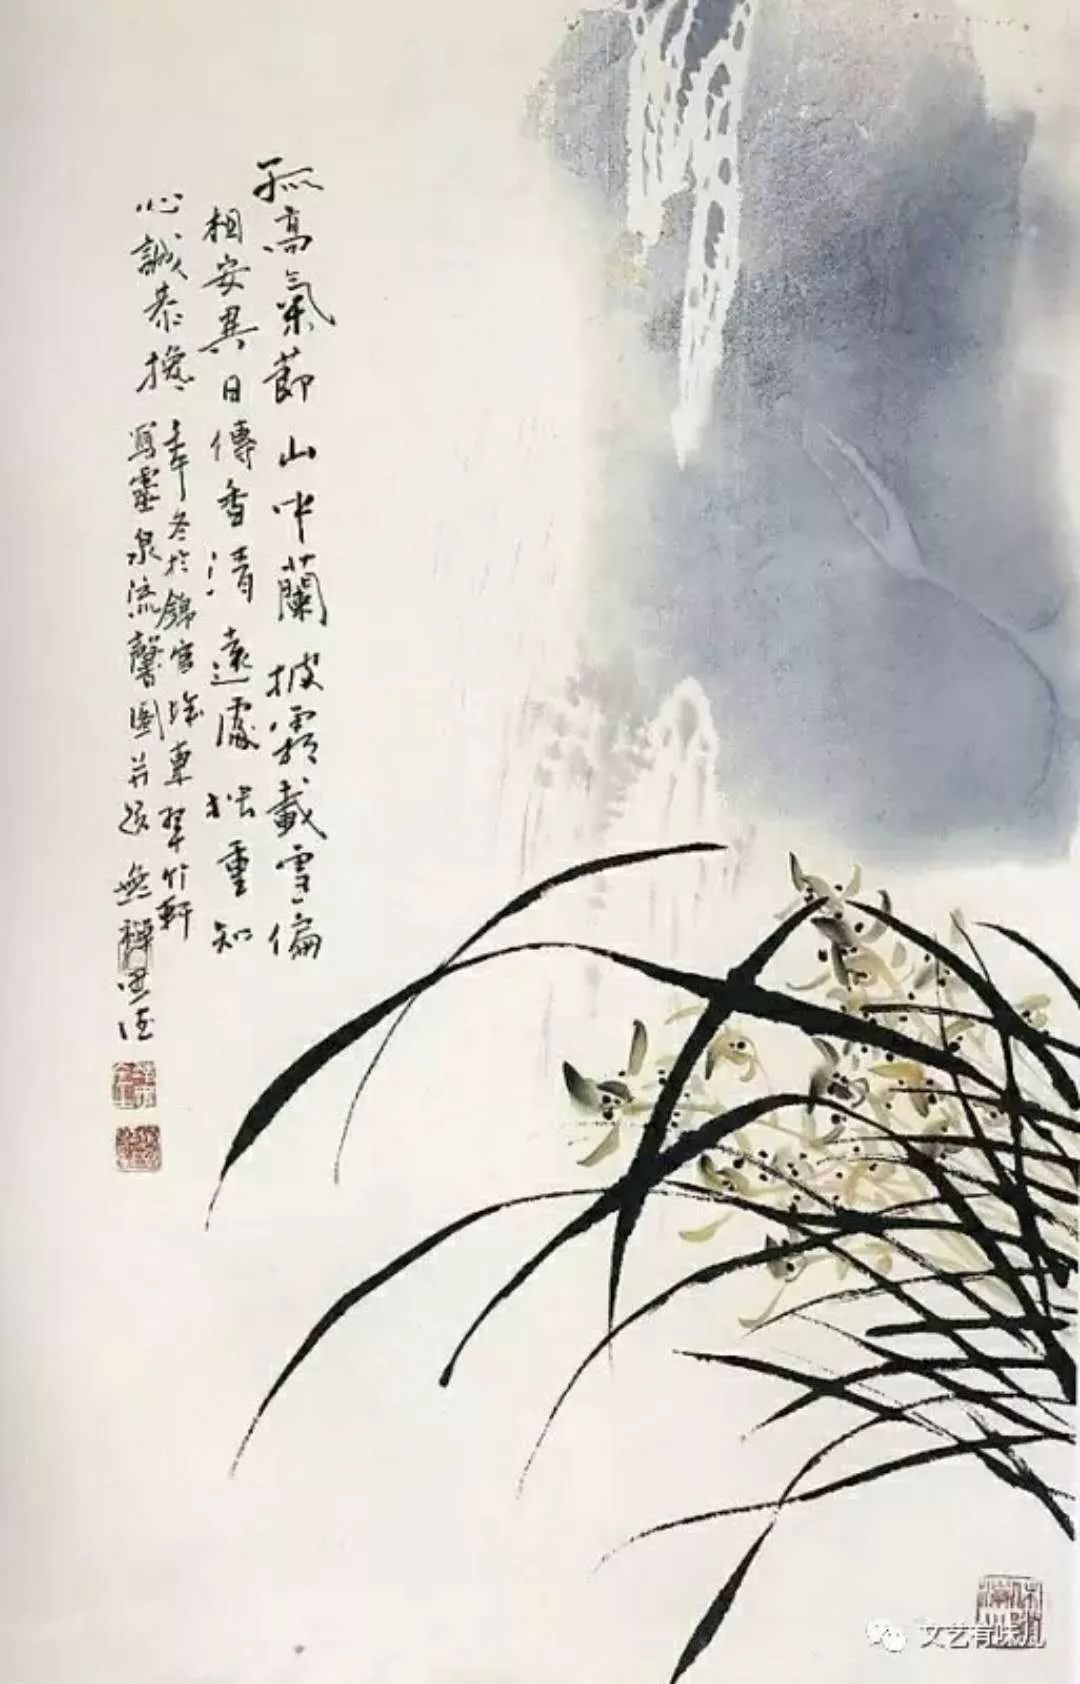 孤高氣節山中蘭披霜載雪偏
相安異日傳香清遠處重知
心誠
壬午冬於錦官城東翠竹軒
寫靈泉流馨圖并題 無禪
文艺有味儿